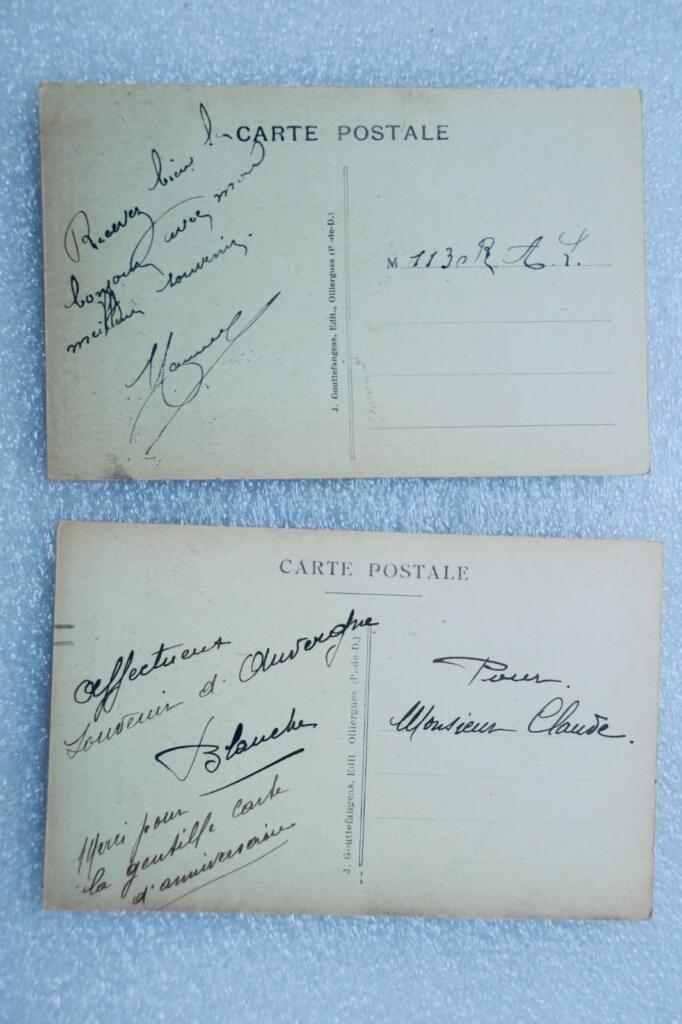 CARTE POSTALE
Recevez bien le
bonjour avec mon
meilleur souvenir.
J. Gouttefangeas, Edit., Olliergues (P.-de-D.)
M 113e R A L.
CARTE POSTALE
Affectueux
souvenir d'Auvergne
Blanche
Merci pour
la gentille carte
d'anniversaire
J. Gouttefangeas, Edit Olliergues (P.-de-D.)
Pour
Monsieur Claude.